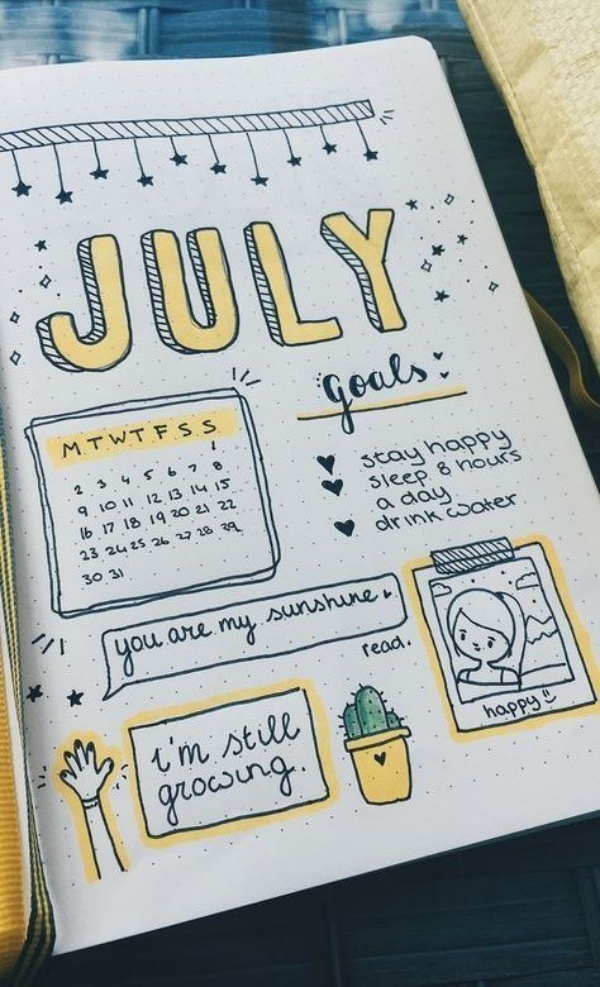 JULY
goals:
M T W T F S S
1
2 3 4 5 6 7 8
9 10 11 12 13 14 15
16 17 18 19 20 21 22
23 24 25 26 27 28 29
30 31
stay happy
sleep 8 hours
a day
drink water
you are my sunshine
read.
happy
i'm still
growing.